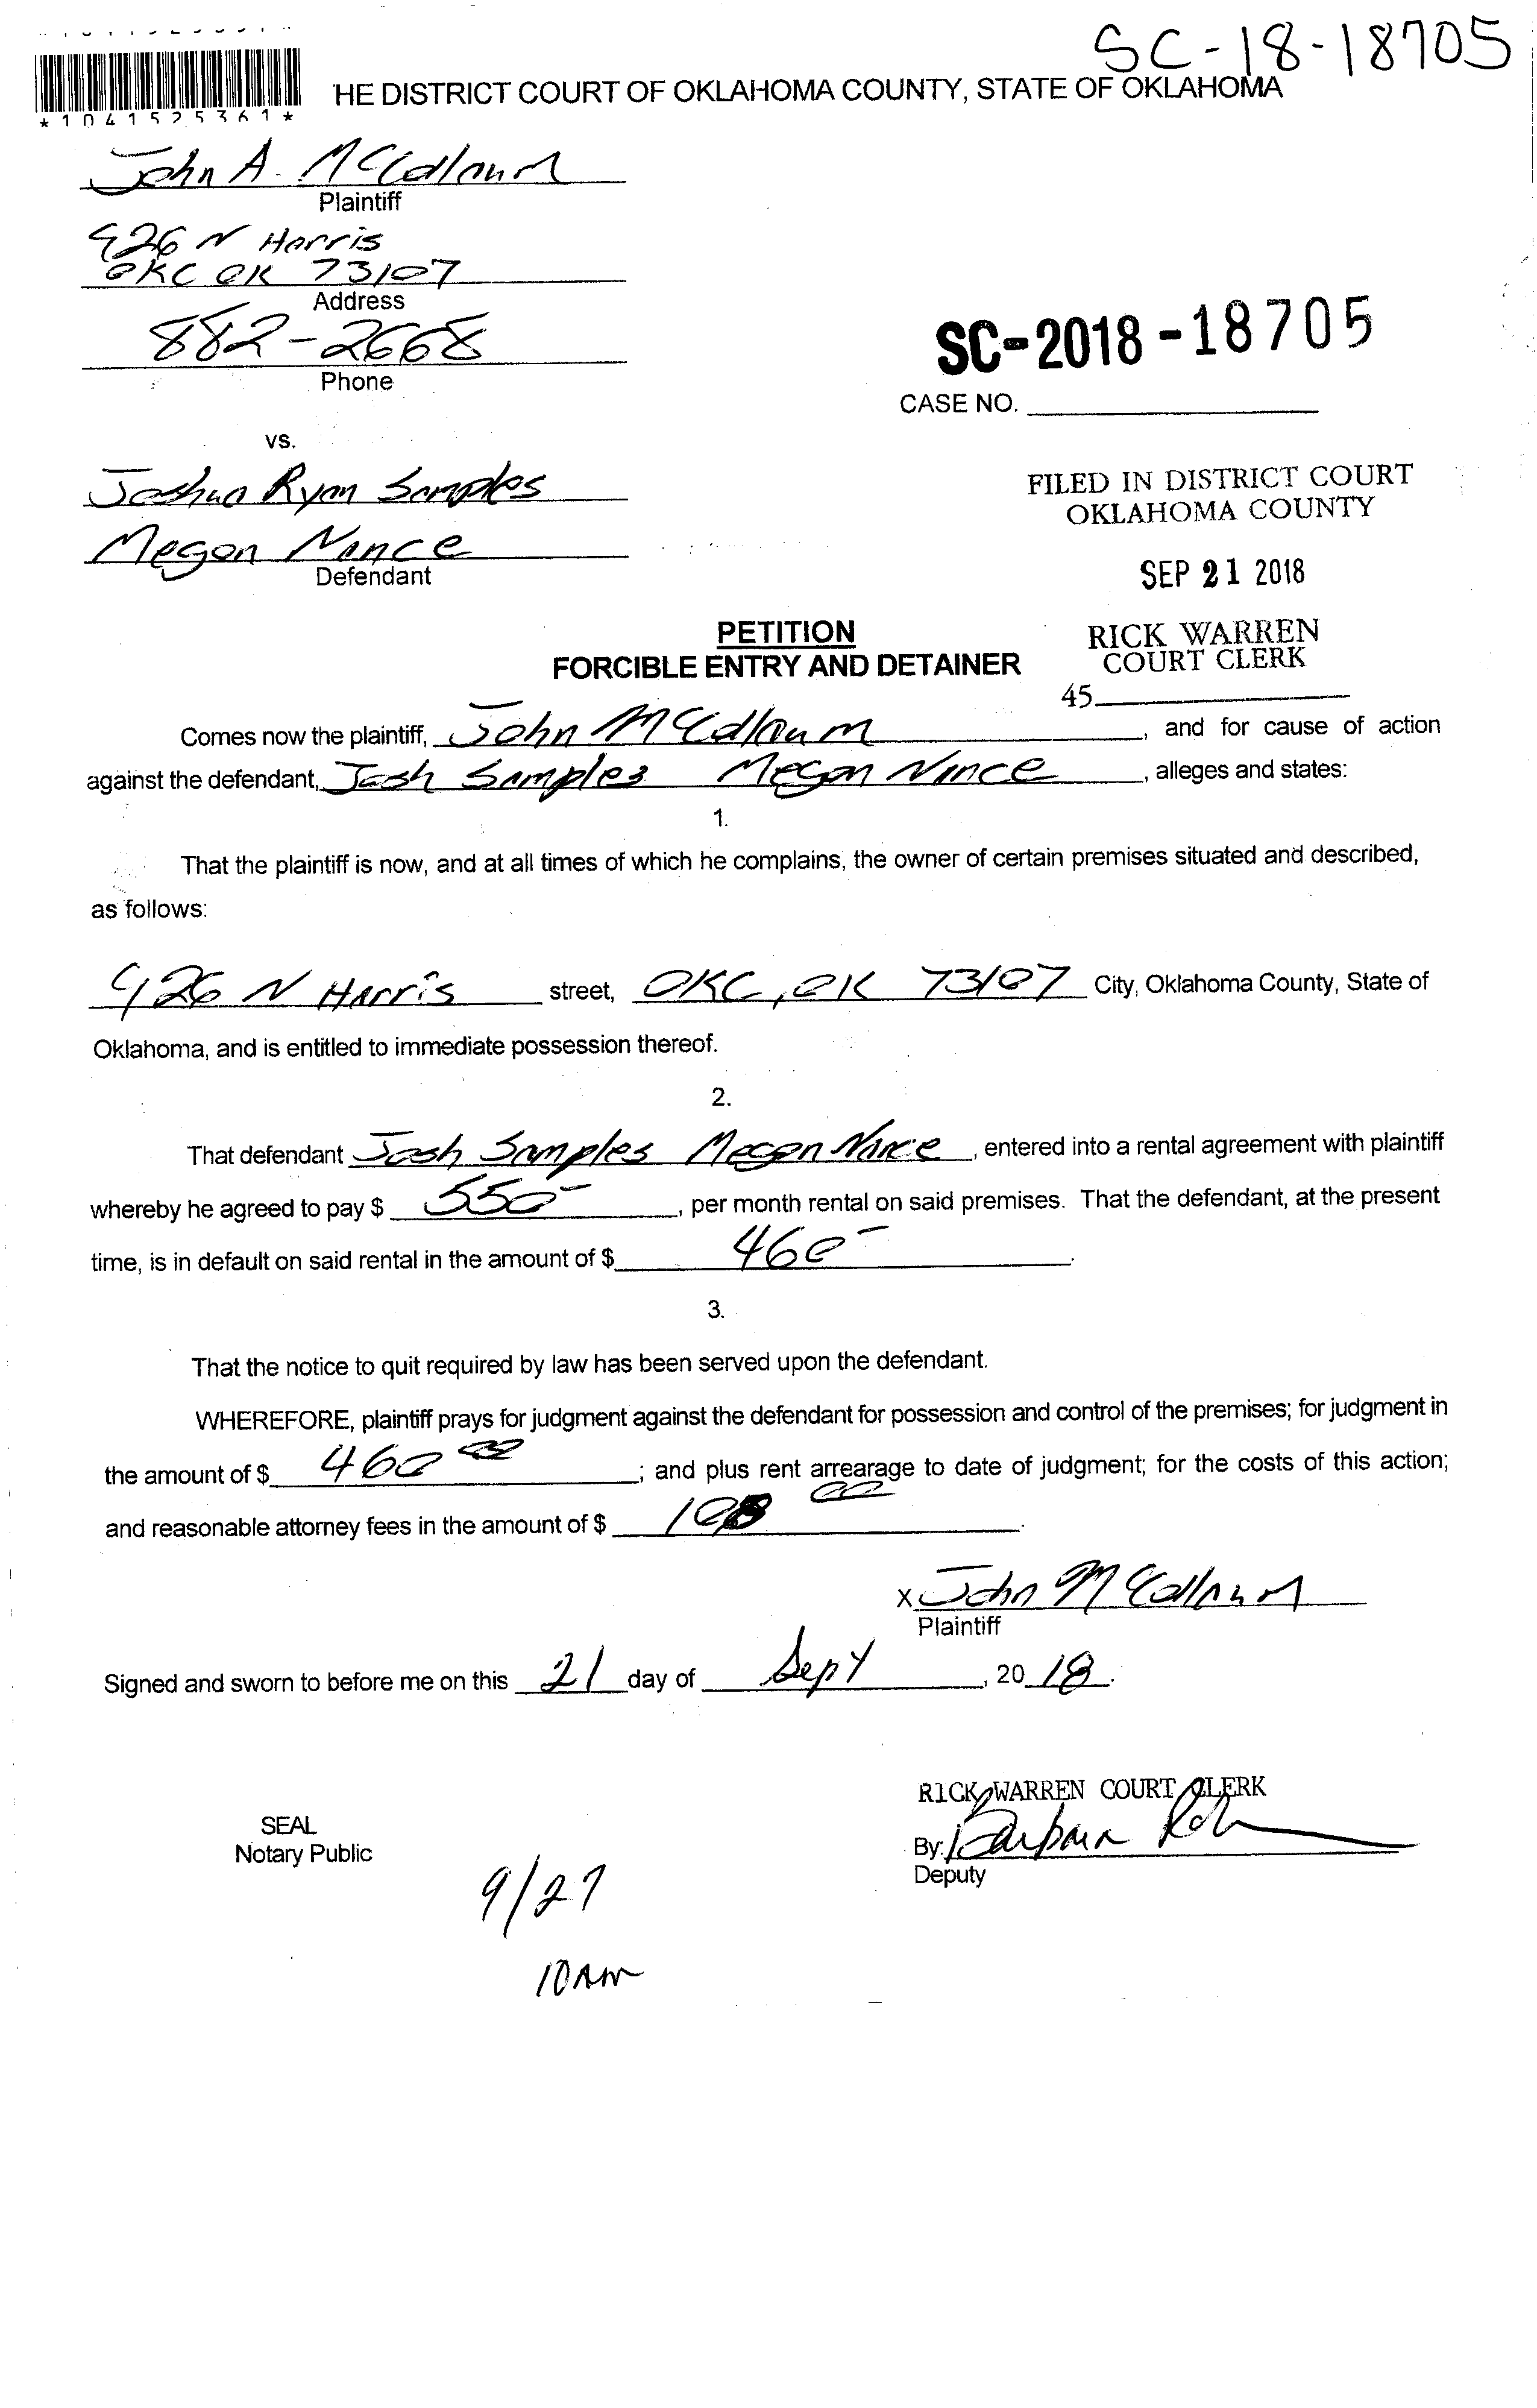 SC-18-18705
*1041525361*
HE DISTRICT COURT OF OKLAHOMA COUNTY, STATE OF OKLAHOMA
John A.
Plaintiff
926 N Harris
OKC OK 73107
Address
882-2668
Phone
SC-2018-18705
CASE NO.
vs.
Joshua Ryan Samples
Megan Nance
Defendant
FILED IN DISTRICT COURT
OKLAHOMA COUNTY
SEP 21 2018
RICK WARREN
COURT CLERK
45
PETITION
FORCIBLE ENTRY AND DETAINER
Comes now the plaintiff, John , and for cause of action
against the defendant, Josh Samples Megan Nance , alleges and states:
1.
That the plaintiff is now, and at all times of which he complains, the owner of certain premises situated and described,
as follows:
926 N Harris street, OKC, OK 73107 City, Oklahoma County, State of
Oklahoma, and is entitled to immediate possession thereof.
2.
That defendant Josh Samples Megan Nance , entered into a rental agreement with plaintiff
whereby he agreed to pay $ 550- , per month rental on said premises. That the defendant, at the present
time, is in default on said rental in the amount of $ 460- .
3.
That the notice to quit required by law has been served upon the defendant.
WHEREFORE, plaintiff prays for judgment against the defendant for possession and control of the premises; for judgment in
the amount of $ 460 00 ; and plus rent arrearage to date of judgment; for the costs of this action;
and reasonable attorney fees in the amount of $ 00 .
X John
Plaintiff
Signed and sworn to before me on this 21 day of Sept , 20 18.
RICK WARREN COURT CLERK
SEAL
Notary Public
By: Barbara
Deputy
9/27
10AM